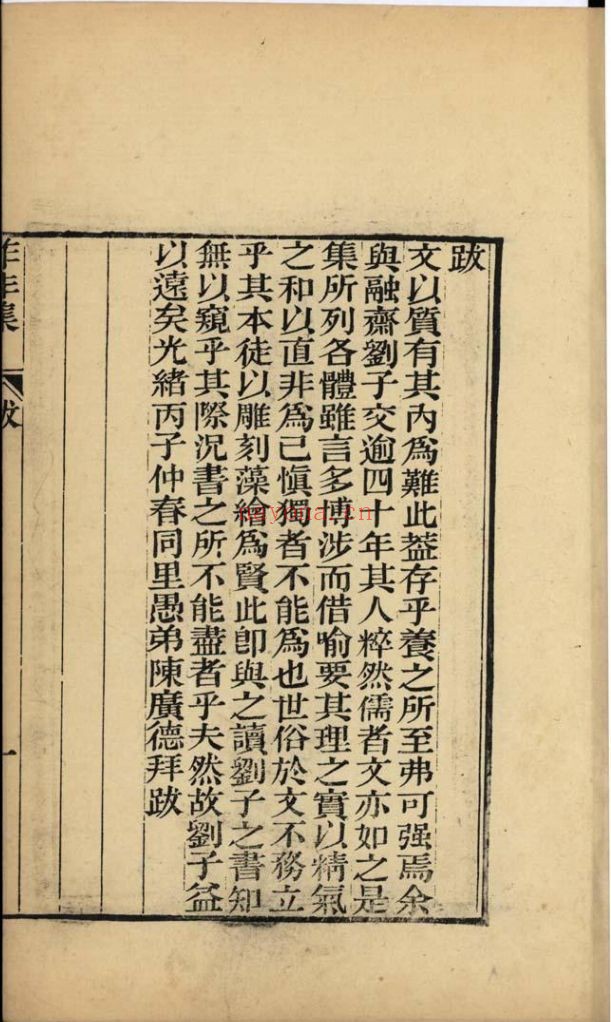 跋
文以質有其內爲難此葢存乎養之所至弗可强焉余
與融齋劉子交逾四十年其人粹然儒者文亦如之是
集所列各體雖言多博涉而借喻要其理之實以精氣
之和以直非爲己愼獨者不能爲也世俗於文不務立
乎其本徒以雕刻藻繪爲賢此卽與之讀劉子之書知
無以窺乎其際況書之所不能盡者乎夫然故劉子益
以遠矣光緒丙子仲春同里愚弟陳廣德拜跋
昨非集
跋
一